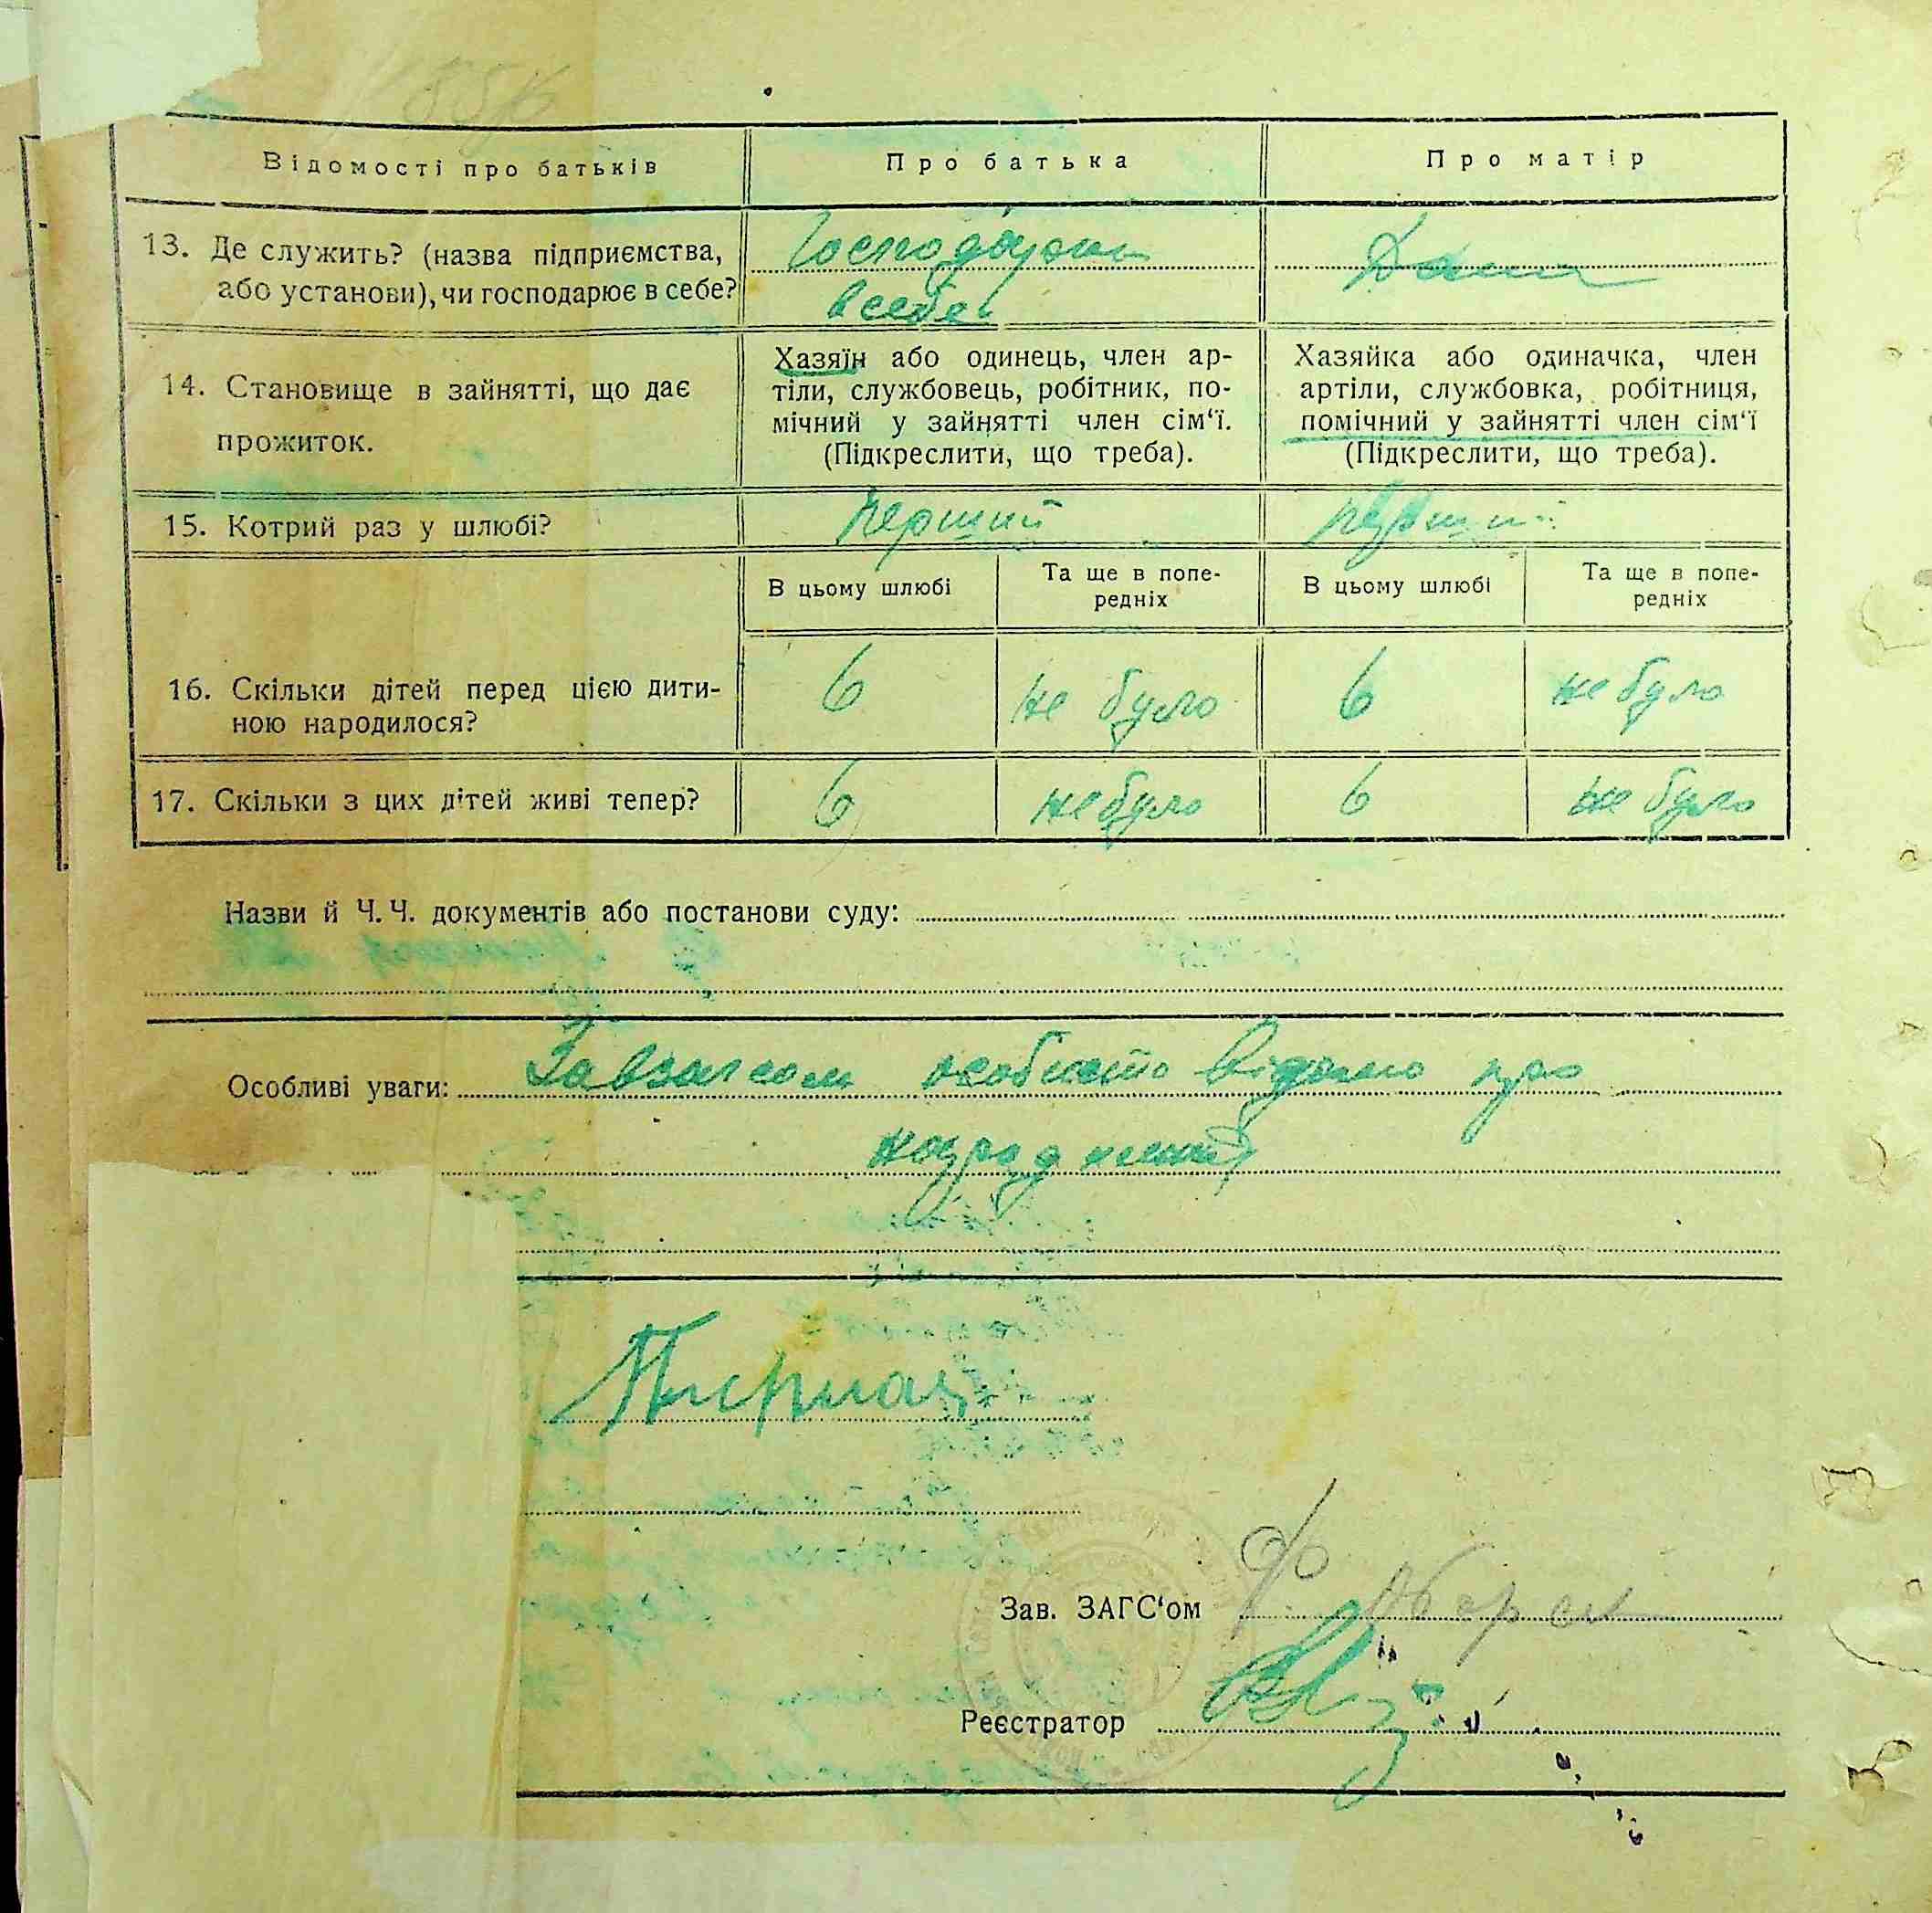 Відомості про батьків
Про батька
Про матір
13. Де служить? (назва підприємства,
або установи), чи господарює в себе?
в себе
14. Становище в зайнятті, що дає
прожиток.
Хазяїн або одинець, член ар-
тіли, службовець, робітник, по-
мічний у зайнятті член сім‘ї.
(Підкреслити, що треба).
Хазяйка або одиначка, член
артіли, службовка, робітниця,
помічний у зайнятті член сім‘ї
(Підкреслити, що треба).
15. Котрий раз у шлюбі?
перший
перший
В цьому шлюбі
Та ще в попе-
редніх
В цьому шлюбі
Та ще в попе-
редніх
16. Скільки дітей перед цією дити-
ною народилося?
6
не було
6
не було
17. Скільки з цих дітей живі тепер?
6
не було
6
не було
Назви й Ч. Ч. документів або постанови суду:
Особливі уваги: Завзагсом особисто відомо про
Зав. ЗАГС‘ом
Реєстратор